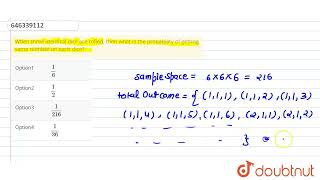 646339112
When three identical dice are rolled, then what is the probability of getting same number on each dice?
Option1 1/6
Option2 1/2
Option3 1/216
Option4 1/36
Sample Space = 6×6×6 = 216
total Outcome = { (1,1,1), (1,1,2), (1,1,3)
(1,1,4), (1,1,5), (1,1,6), (2,1,1), (2,1,2)
}
doubtnut